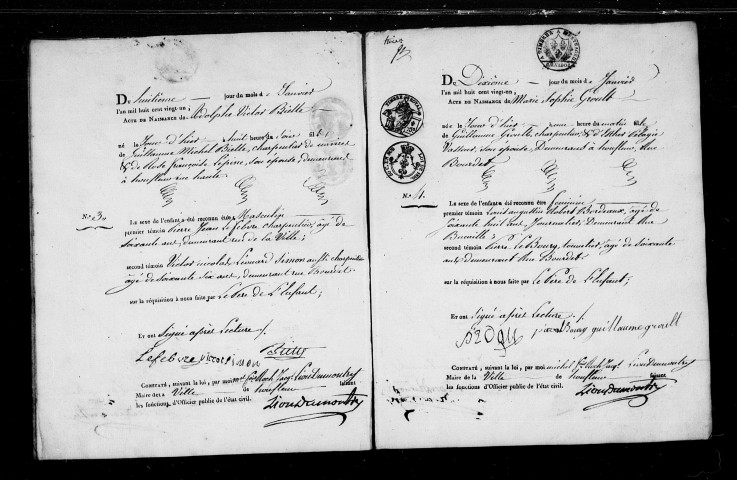 Du huitième jour du mois de Janvier
l'an mil huit cent vingt-un;
Acte de Naissance de Adolphe Victor
né le Jour d'hier huit heures du soir fils
de Guillaume Michel charpentier de navires
& de Rose françoise Lepine, son épouse, demeurant
à honfleur rue haute
N.° 3.
Le sexe de l'enfant a été reconnu être Masculin
premier témoin Pierre Jean Lefebvre charpentier, âgé de
soixante ans, demeurant rue de la Ville,
second témoin Victor nicolas Léonard Simon aussi charpentier
âgé de soixante six ans, demeurant rue Bourdet
sur la réquisition à nous faite par Le Père de L'Enfant;
Et ont Signé après Lecture ./.
Lefebvre victor simon
Constaté, suivant la loi, par moi Lion Dumontry
Maire de la Ville de honfleur faisant
les fonctions d'Officier public de l'état civil.
Lion Dumontry
Du Dixième jour du mois de Janvier
l'an mil huit cent vingt-un;
Acte de Naissance de Marie Sophie Groult
né le Jour d'hier heure du matin fille
de Guillaume Groult, charpentier & d'Esther Pélagie
son épouse, Demeurant à honfleur, Rue
Bourdet
N.° 4.
Le sexe de l'enfant a été reconnu être féminin
premier témoin Louis augustin Bordeaux, âgé de
soixante huit ans Journalier, Demeurant Rue
Bucaille &
second témoin Pierre Le Bourg, tonnelier, âgé de soixante
ans, demeurant Rue Bourdet
sur la réquisition à nous faite par Le Père de L'Enfant;
Et ont Signé après Lecture ./.
Bourg guillaume groult
Constaté, suivant la loi, par moi michel Lion Dumontry
Maire de la Ville de honfleur faisant
les fonctions d'Officier public de l'état civil.
Lion Dumontry